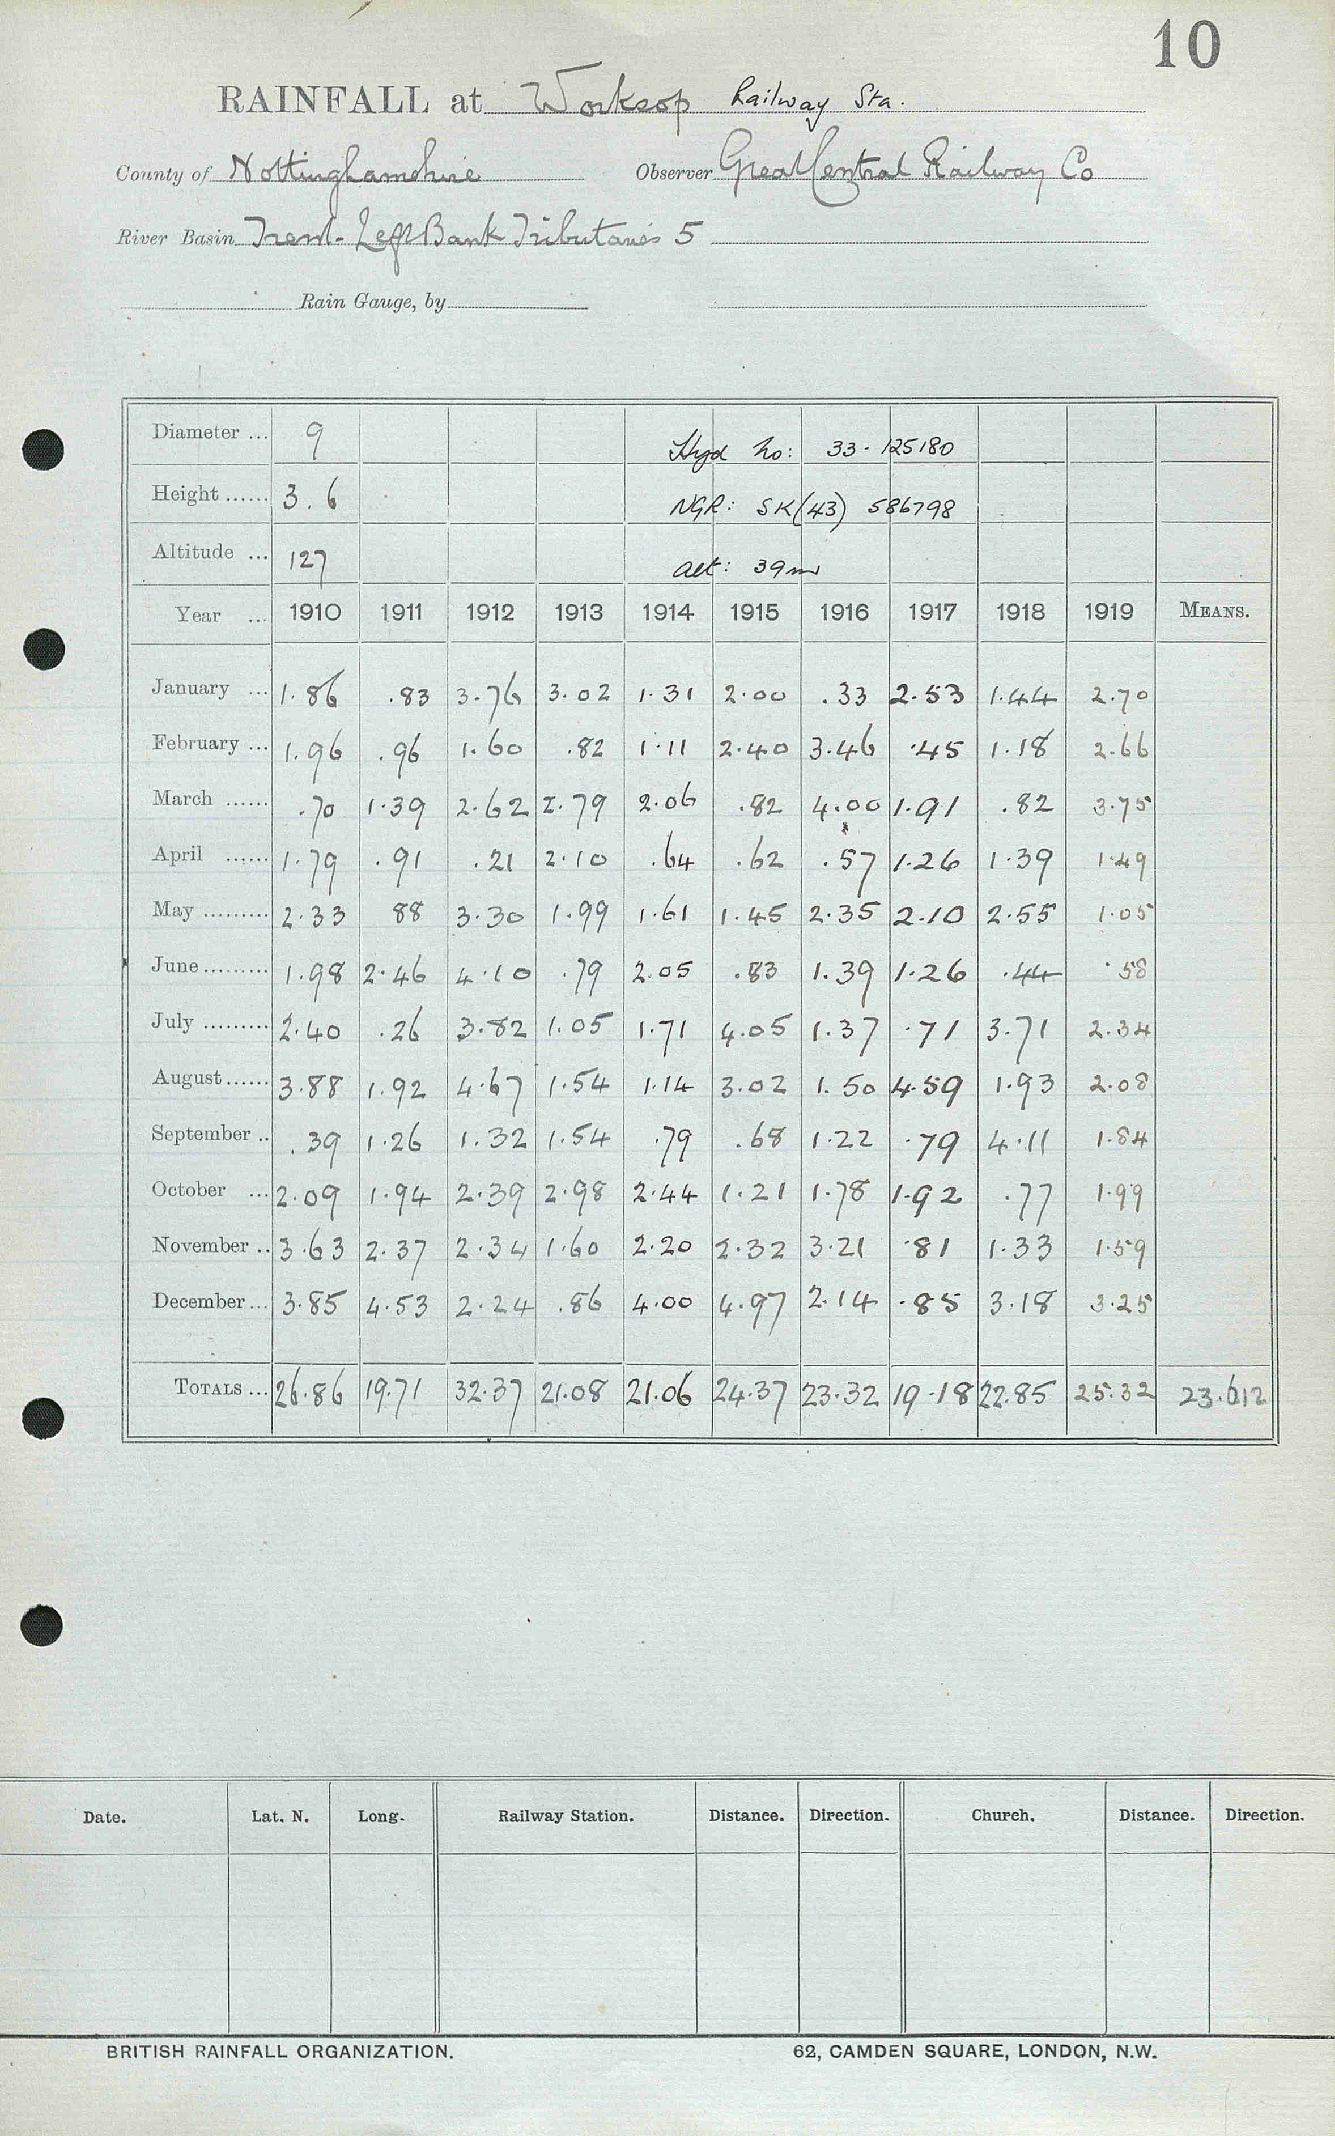 10
RAINFALL at Worksop Railway Sta.
County of Nottinghamshire Observer Great Central Railway Co
River Basin Trent - Left Bank Tributaries 5
Rain Gauge, by
Diameter ... 9 Hyd No: 33-125180
Height ...... 3.6 NGR: SK(43) 586798
Altitude ... 127 alt: 39m
Year ... 1910 1911 1912 1913 1914 1915 1916 1917 1918 1919 MEANS.
January ... 1.86 .83 3.76 3.02 1.31 2.00 .33 2.53 1.44 2.70
February ... 1.96 .96 1.60 .82 1.11 2.40 3.46 .45 1.18 2.66
March ...... .70 1.39 2.62 2.79 2.06 .82 4.00 1.91 .82 3.75
April ...... 1.79 .91 .21 2.10 .64 .62 .57 1.26 1.39 1.49
May ......... 2.33 88 3.30 1.99 1.61 1.45 2.35 2.10 2.55 1.05
June ......... 1.98 2.46 4.10 .79 2.05 .83 1.39 1.26 .44 .58
July ......... 2.40 .26 3.82 1.05 1.71 4.05 1.37 .71 3.71 2.34
August ...... 3.88 1.92 4.67 1.54 1.14 3.02 1.50 4.59 1.93 2.08
September .. .39 1.26 1.32 1.54 .79 .68 1.22 .79 4.11 1.84
October ... 2.09 1.94 2.39 2.98 2.44 1.21 1.78 1.92 .77 1.99
November .. 3.63 2.37 2.34 1.60 2.20 2.32 3.21 .81 1.33 1.59
December ... 3.85 4.53 2.24 .86 4.00 4.97 2.14 .85 3.18 3.25
TOTALS ... 26.86 19.71 32.37 21.08 21.06 24.37 23.32 19.18 22.85 25.32 23.612
Date. Lat. N. Long. Railway Station. Distance. Direction. Church. Distance. Direction.
BRITISH RAINFALL ORGANIZATION. 62, CAMDEN SQUARE, LONDON, N.W.